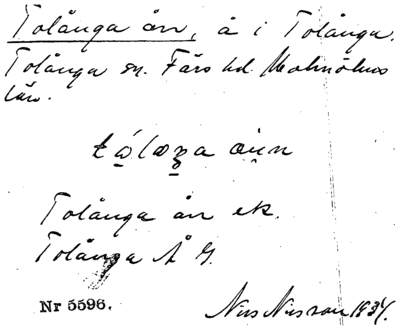 Tolånga ån, å i Tolånga.
Tolånga sn. Färs hd. Malmöhus
län.
Tolånga ån ek.
Tolånga Å G.
Nr 5596.
Nils Nilsson 1934.